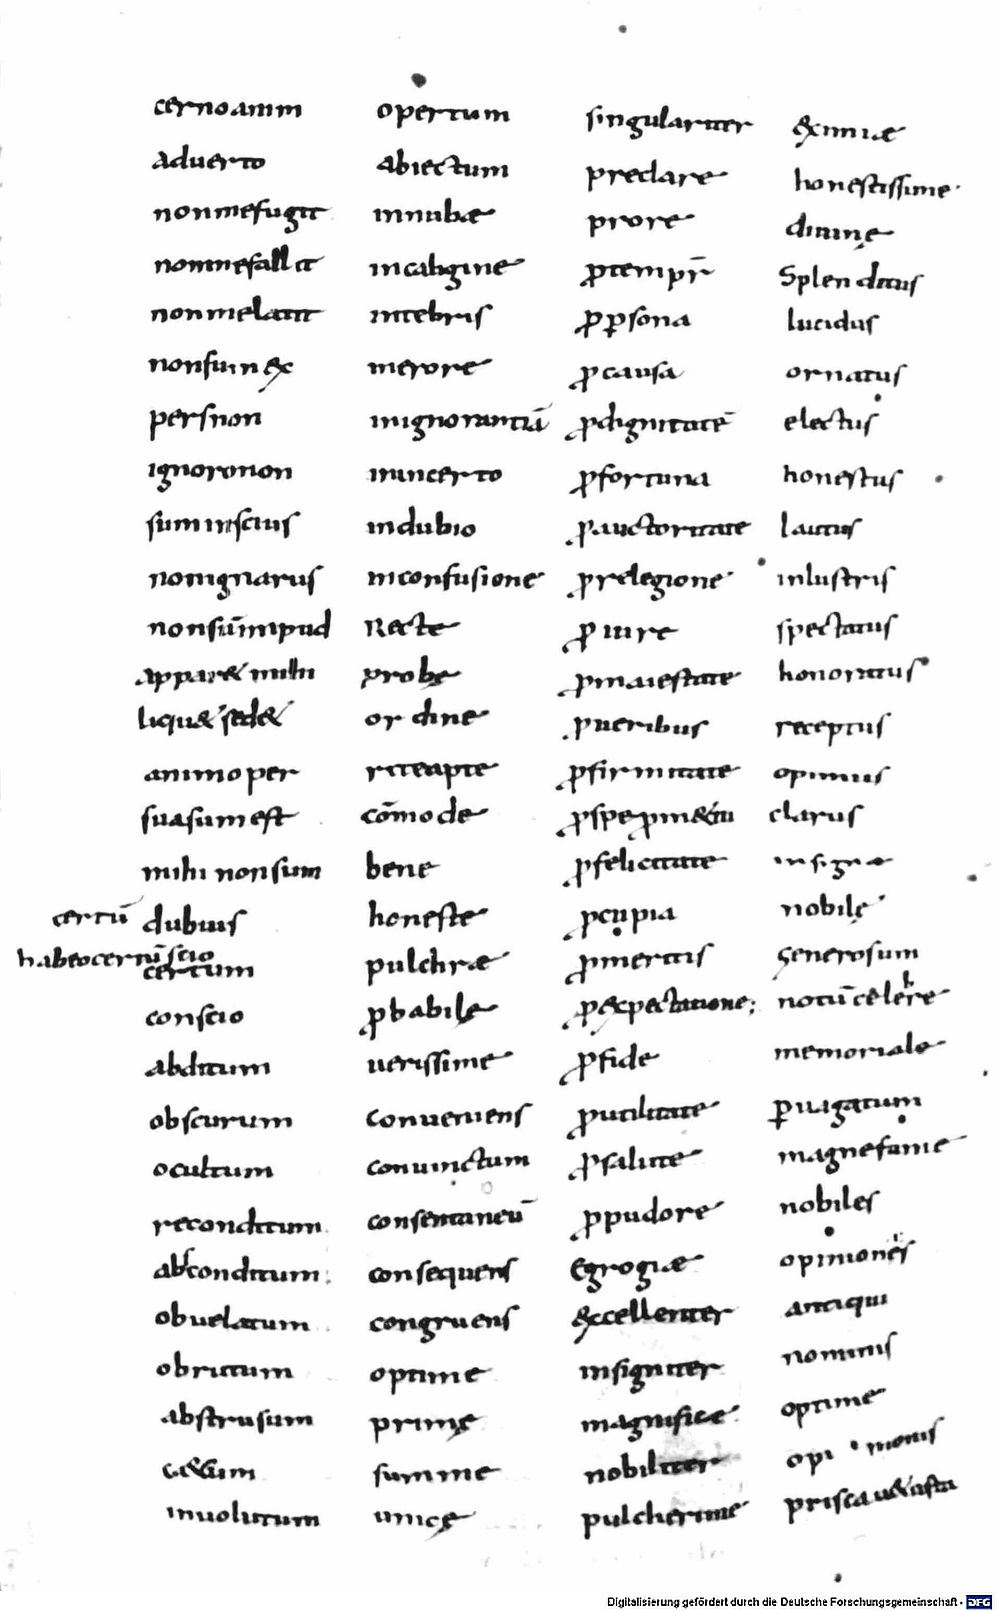 cernoanim
aduerto
nonmefugit
nonmefallit
nonmelatit
nonsum ex
persnon
ignoronon
sum inscius
nonignarus
nonsūimpud
appar& mihi
liqu& sed&
animo per
suasum est
mihi non sum
certū dubius
habeo certū scio
certum
conscio
abditum
obscurum
ocultum
reconditum
absconditum
obuelatum
obrutum
abstrusum
inuolutum
opertum
abiectum
innubæ
incaligine
intebris
merore
inignorantiā
inincerto
indubio
inconfusione
Recte
probę
ordine
riteapte
cōmode
bene
honeste
pulchræ
ꝓbabilę
uerissime
conueniens
conuinctum
consentaneū
consequens
congruens
optime
primę
summe
unicę
singulariter
preclare
prore
ꝓtempr̄
ꝓꝑsona
ꝓcausa
ꝓdignitatē
ꝓfortuna
ꝓauctoritate
ꝓrelegione
ꝓiure
ꝓmaiestate
ꝓueribus
ꝓfirmitate
ꝓspe ꝓm&u
ꝓfelicitate
ꝓcupia
ꝓmeritis
ꝓexpectatione;
ꝓfide
ꝓutilitate
ꝓsalute
ꝓpudore
Egrogiæ
&ccellenter
insigniter
magnifice
nobiliter
pulcherime
eximiæ
honestissime
diuinę
Splenditus
lucidus
ornatus
electus
honestus
lautus
inlustris
spectatus
honoratus
receptus
opimius
clarus
insigne
nobilę
generosum
notū celebre
memoriale
ꝑuagatum
magnefame
nobiles
opinionēs
antiqui
nominis
optime
opinionis
prisca uetusta